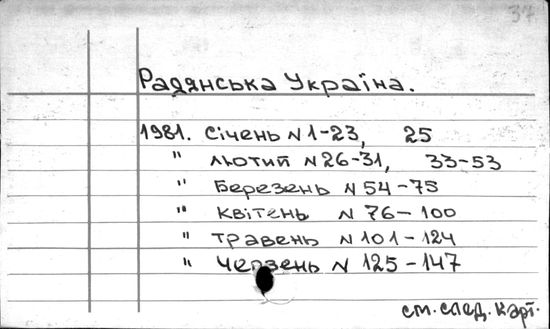 37
Радянська Україна.
1981. Січень N 1-23, 25
" лютий N 26-31, 33-53
" Березень N 54-75
" квітень N 76-100
" травень N 101-124
" Червень N 125-147
см. след. карт.